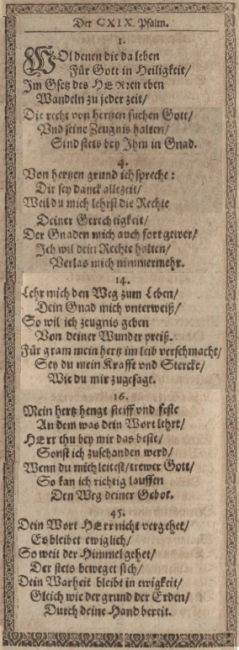 Der CXIX. Psalm.
1.
WOl denen die da leben
Für Gott in Heiligkeit/
Im Gsetz des HERren eben
Wandeln zu jeder zeit/
Die recht von hertzen suchen Gott/
Vnd seine Zeugnis halten/
Sind stets bey Ihm in Gnad.
4.
Von hertzen grund ich spreche:
Dir sey danck allezeit/
Weil du mich lehrst die Rechte
Deiner Gerechtigkeit/
Der Gnaden mich auch fort gewer/
Ich wil dein Rechte halten/
Verlas mich nimmermehr.
14.
Lehr mich den Weg zum Leben/
Dein Gnad mich vnterweiß/
So wil ich zeugnis geben
Von deiner Wunder preiß.
Für gram mein hertz im leib verschmacht/
Sey du mein Krafft vnd Stercke/
Wie du mir zugesagt.
16.
Mein hertz hengt steiff vnd feste
An dem was dein Wort lehrt/
HErr thu bey mir das beste/
Sonst ich zuschanden werd/
Wenn du mich leitest/trewer Gott/
So kan ich richtig lauffen
Den Weg deiner Gebot.
45.
Dein Wort HErr nicht vergehet/
Es bleibet ewiglich/
So weit der Himmel gehet/
Der stets beweget sich/
Dein Warheit bleibt in ewigkeit/
Gleich wie der grund der Erden/
Durch deine Hand bereit.